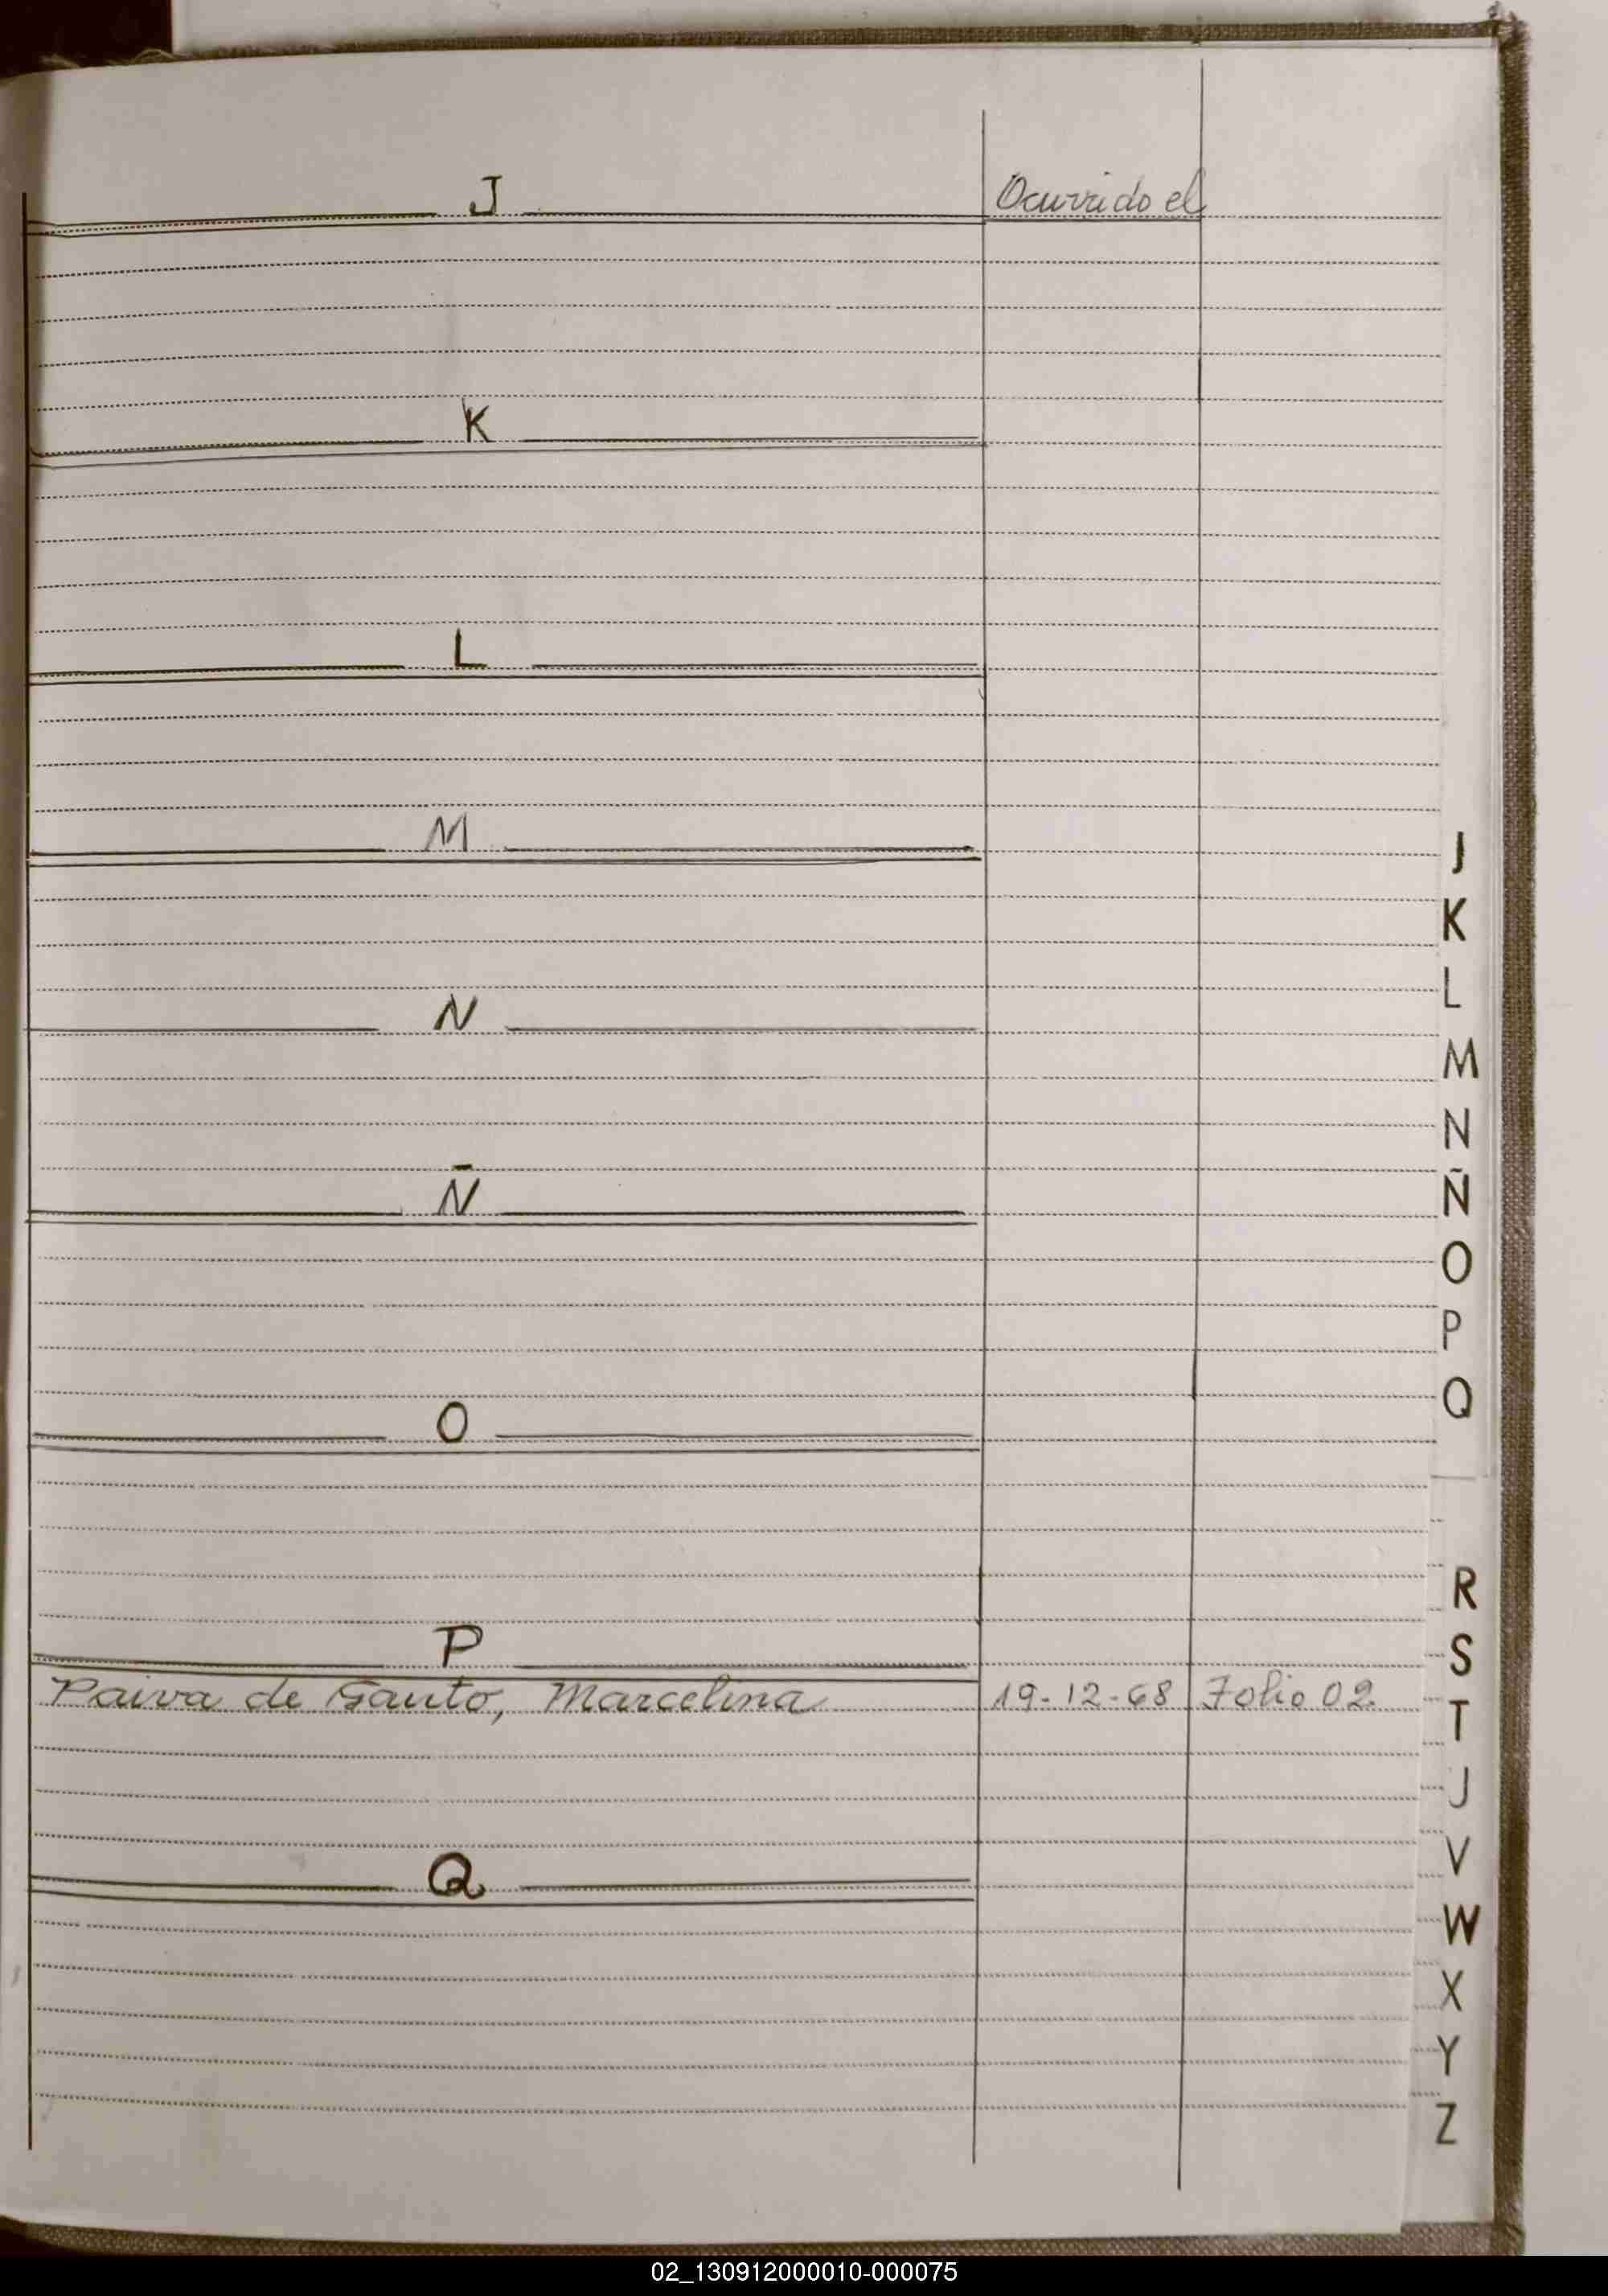 J Ocurrido el
K
L
M
N
Ñ
O
P
Paiva de Gauto, Marcelina 19-12-68 Folio 02
Q
J
K
L
M
N
Ñ
O
P
Q
R
S
T
J
V
W
X
Y
Z
02_130912000010-000075